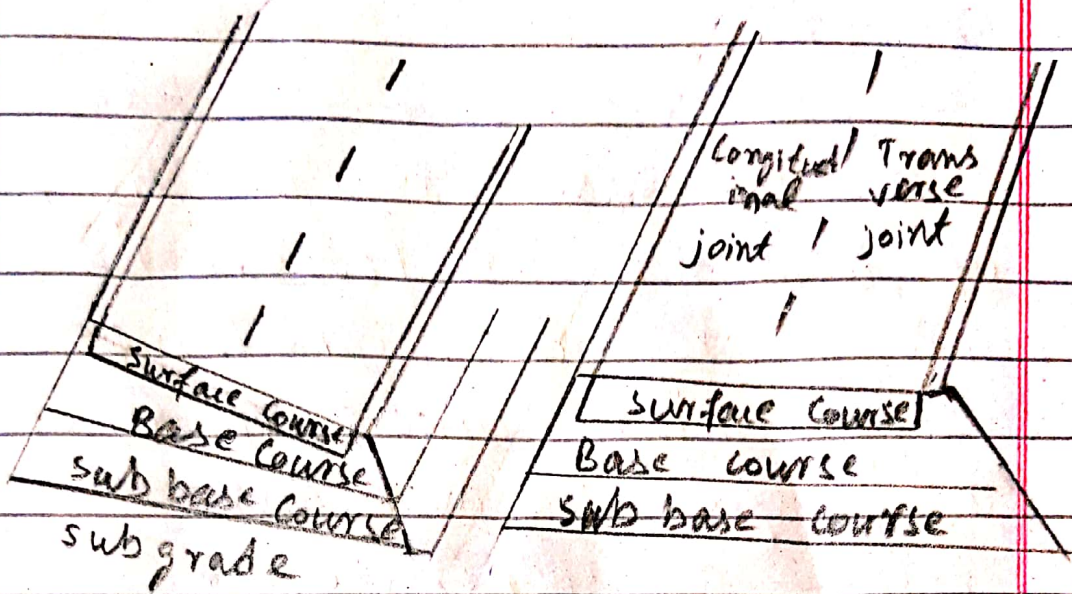 surface course
Base course
sub base course
subgrade
Longitud Trans
inal verse
joint joint
surface course
Base course
sub base course